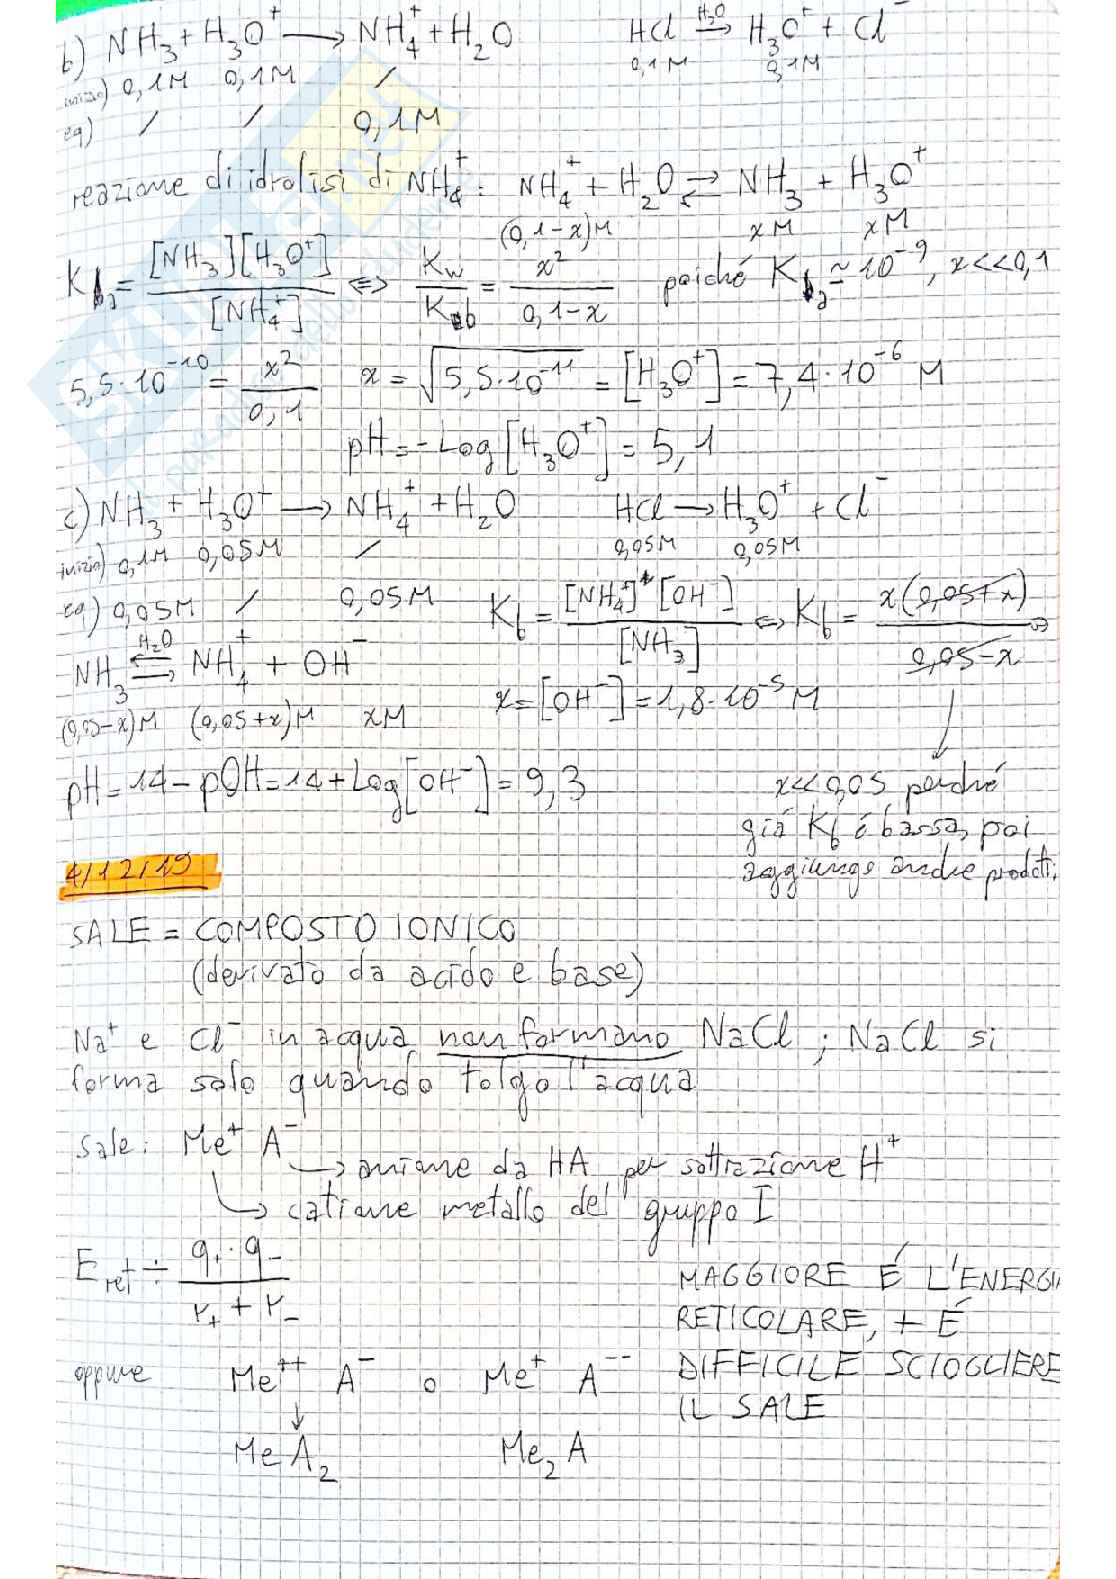 b) NH₃ + H₃O⁺ → NH₄⁺ + H₂O    HCl ⇌ (H₂O) H₃O⁺ + Cl⁻
inizio) 0,1M 0,1M /    0,1M 0,1M
eq) / / 0,1M
reazione di idrolisi di NH₄⁺: NH₄⁺ + H₂O ⇌ NH₃ + H₃O⁺
(0,1-x)M xM xM
K = [NH₃][H₃O⁺] / [NH₄⁺] ⇔ Kw / Kb = x² / 0,1-x    poiché K ~ 10⁻⁹, x<<0,1
5,5·10⁻¹⁰ = x² / 0,1    x = √5,5·10⁻¹¹ = [H₃O⁺] = 7,4·10⁻⁶ M
pH = -Log[H₃O⁺] = 5,1
c) NH₃ + H₃O⁺ → NH₄⁺ + H₂O    HCl → H₃O⁺ + Cl⁻
inizio) 0,1M 0,05M /    0,05M 0,05M
eq) 0,05M / 0,05M    Kb = [NH₄⁺][OH⁻] / [NH₃] ⇔ Kb = x(0,05+x) / 0,05-x ⇒
NH₃ ⇌ (H₂O) NH₄⁺ + OH⁻
x = [OH⁻] = 1,8·10⁻⁵ M
(0,05-x)M (0,05+x)M xM
pH = 14 - pOH = 14 + Log[OH⁻] = 9,3    x<<0,05 perché
già Kb é bassa, poi
aggiungo anche prodotti,
4/12/19
SALE = COMPOSTO IONICO
(derivato da acido e base)
Na⁺ e Cl⁻ in acqua non formano NaCl; NaCl si
forma solo quando tolgo l'acqua
Sale: Me⁺ A⁻
→ anione da HA per sottrazione H⁺
→ catione metallo del gruppo I
E ret ÷ q₊·q₋ / r₊ + r₋    MAGGIORE É L'ENERGIA
RETICOLARE, + É
DIFFICILE SCIOGLIERE
IL SALE
oppure Me⁺⁺ A⁻ o Me⁺ A⁻⁻
↓
MeA₂    Me₂A